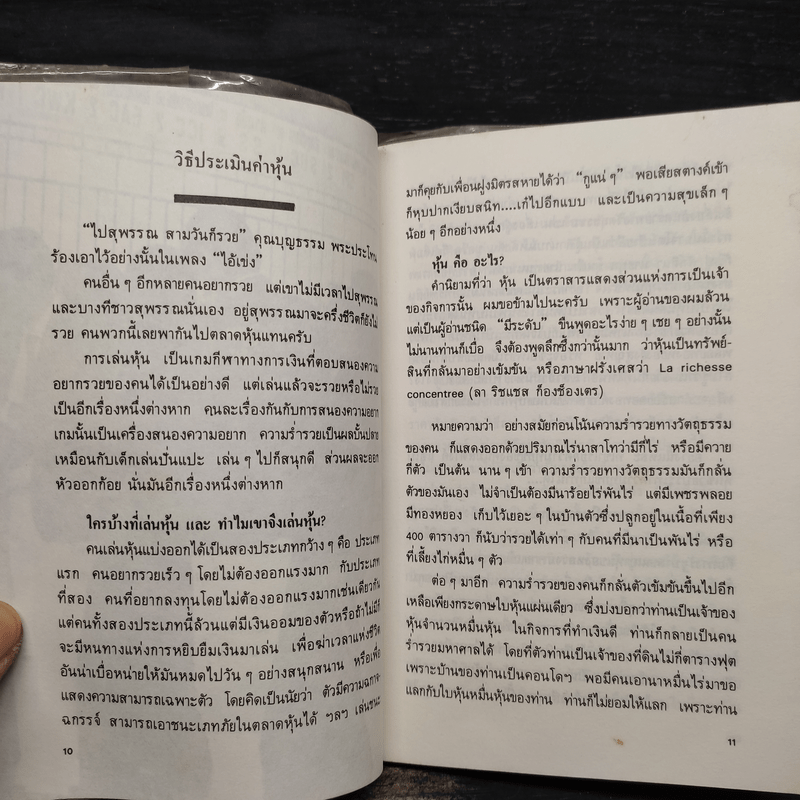 วิธีประเมินค่าหุ้น
“ไปสุพรรณ สามวันก็รวย” คุณบุญธรรม พระประโทน
ร้องเอาไว้อย่างนั้นในเพลง “ไอ้เข่ง”
คนอื่น ๆ อีกหลายคนอยากรวย แต่เขาไม่มีเวลาไปสุพรรณ
และบางทีชาวสุพรรณนั่นเอง อยู่สุพรรณมาจะครึ่งชีวิตก็ยังไม่
รวย คนพวกนี้เลยพากันไปตลาดหุ้นแทนครับ
การเล่นหุ้น เป็นเกมกีฬาทางการเงินที่ตอบสนองความ
อยากรวยของคนได้เป็นอย่างดี แต่เล่นแล้วจะรวยหรือไม่รวย
เป็นอีกเรื่องหนึ่งต่างหาก คนละเรื่องกันกับการสนองความอยาก
เกมนั้นเป็นเครื่องสนองความอยาก ความร่ำรวยเป็นผลบั้นปลาย
เหมือนกับเด็กเล่นปั่นแปะ เล่น ๆ ไปก็สนุกดี ส่วนผลจะออก
หัวออกก้อย นั่นมันอีกเรื่องหนึ่งต่างหาก
ใครบ้างที่เล่นหุ้น และ ทำไมเขาจึงเล่นหุ้น?
คนเล่นหุ้นแบ่งออกได้เป็นสองประเภทกว้าง ๆ คือ ประเภท
แรก คนอยากรวยเร็ว ๆ โดยไม่ต้องออกแรงมาก กับประเภท
ที่สอง คนที่อยากลงทุนโดยไม่ต้องออกแรงมากเช่นเดียวกัน
แต่คนทั้งสองประเภทนี้ล้วนแต่มีเงินออมของตัวหรือถ้าไม่มีก็
จะมีหนทางแห่งการหยิบยืมเงินมาเล่น เพื่อฆ่าเวลาแห่งชีวิต
อันน่าเบื่อหน่ายให้มันหมดไปวัน ๆ อย่างสนุกสนาน หรือเพื่อ
แสดงความสามารถเฉพาะตัว โดยคิดเป็นนัยว่า ตัวมีความฉกาจ
ฉกรรจ์ สามารถเอาชนะเภทภัยในตลาดหุ้นได้ ฯลฯ เล่นชนะ
10
มาก็คุยกับเพื่อนฝูงมิตรสหายได้ว่า “กูแน่ ๆ” พอเสียสตางค์เข้า
ก็หุบปากเงียบสนิท....เก้ไปอีกแบบ และเป็นความสุขเล็ก ๆ
น้อย ๆ อีกอย่างหนึ่ง
หุ้น คือ อะไร?
คำนิยามที่ว่า หุ้น เป็นตราสารแสดงส่วนแห่งการเป็นเจ้า
ของกิจการนั้น ผมขอข้ามไปนะครับ เพราะผู้อ่านของผมล้วน
แต่เป็นผู้อ่านชนิด “มีระดับ” ขืนพูดอะไรง่าย ๆ เชย ๆ อย่างนั้น
ไม่นานท่านก็เบื่อ จึงต้องพูดลึกซึ้งกว่านั้นมาก ว่าหุ้นเป็นทรัพย์-
สินที่กลั่นมาอย่างเข้มข้น หรือภาษาฝรั่งเศสว่า La richesse
concentree (ลา ริชแชส ก็องช็องเตร)
หมายความว่า อย่างสมัยก่อนโน้นความร่ำรวยทางวัตถุธรรม
ของคน ก็แสดงออกด้วยปริมาณไร่นาสาโทว่ามีกี่ไร่ หรือมีควาย
กี่ตัว เป็นต้น นาน ๆ เข้า ความร่ำรวยทางวัตถุธรรมมันก็กลั่น
ตัวของมันเอง ไม่จำเป็นต้องมีนาร้อยไร่พันไร่ แต่มีเพชรพลอย
มีทองหยอง เก็บไว้เยอะ ๆ ในบ้านตัวซึ่งปลูกอยู่ในเนื้อที่เพียง
400 ตารางวา ก็นับว่ารวยได้เท่า ๆ กับคนที่มีนาเป็นพันไร่ หรือ
ที่เลี้ยงไก่หมื่น ๆ ตัว
ต่อ ๆ มาอีก ความร่ำรวยของคนก็กลั่นตัวเข้มข้นขึ้นไปอีก
เหลือเพียงกระดาษใบหุ้นแผ่นเดียว ซึ่งบ่งบอกว่าท่านเป็นเจ้าของ
หุ้นจำนวนหมื่นหุ้น ในกิจการที่ทำเงินดี ท่านก็กลายเป็นคน
ร่ำรวยมหาศาลได้ โดยที่ตัวท่านเป็นเจ้าของที่ดินไม่กี่ตารางฟุต
เพราะบ้านของท่านเป็นคอนโดฯ พอมีคนเอานาหมื่นไร่มาขอ
แลกกับใบหุ้นหมื่นหุ้นของท่าน ท่านก็ไม่ยอมให้แลก เพราะท่าน
11